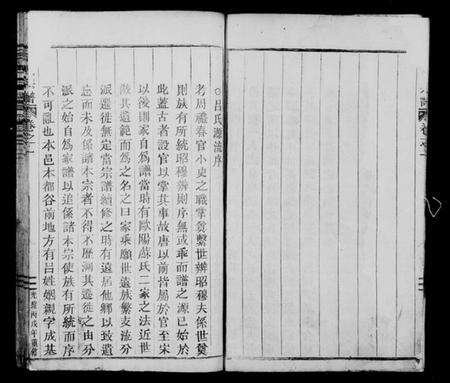 ○呂氏源流序
考周禮春官小史之職掌奠繫世辨昭穆夫係世奠
則族有所統昭穆辨則序無或乖而譜之源已始於
此蓋古者設官以掌其事故唐以前皆屬於官至宋
以後則家自為譜當時有歐陽蘇氏二家之法近世
倣其遺範而為之名之曰家乘顧世遠族繁支流分
派遷徙無定當譜續修之時有遠居他鄉以致遺
忘而未及係諸本宗者不得不歷溯其遷徙之由分
派之始自為家譜以追係諸本宗使族有所統而序
不可亂也本邑木都谷前地方有呂姓姻親字成基
光緒丙戌年重修